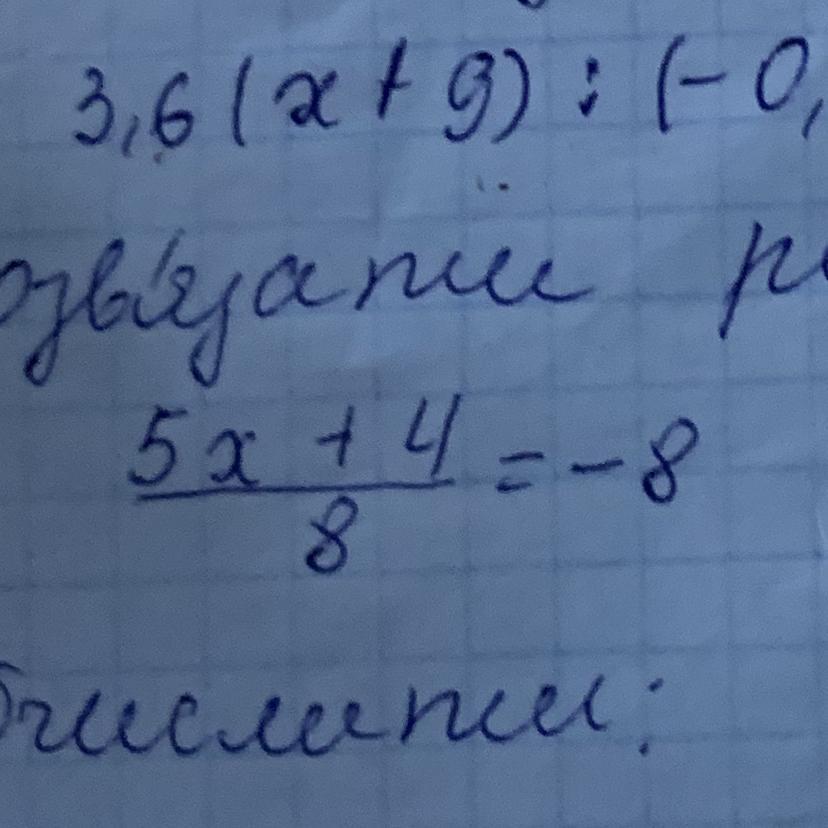 3,6(x + 9) : (- 0,
озв'язати
5x + 4
——— = - 8
8
бчислити: